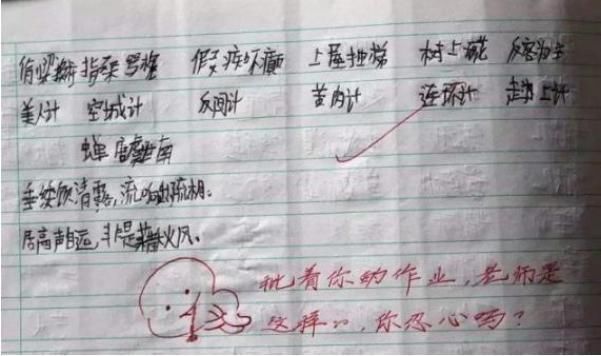 偷梁换柱 指桑骂槐 假痴不癫 上屋抽梯 树上开花 反客为主
美人计 空城计 反间计 苦肉计 连环计 走为上计
蝉 虞世南
垂緌饮清露,流响出疏桐。
居高声自远,非是藉秋风。
批着你的作业,老师是
这样的,你忍心吗?